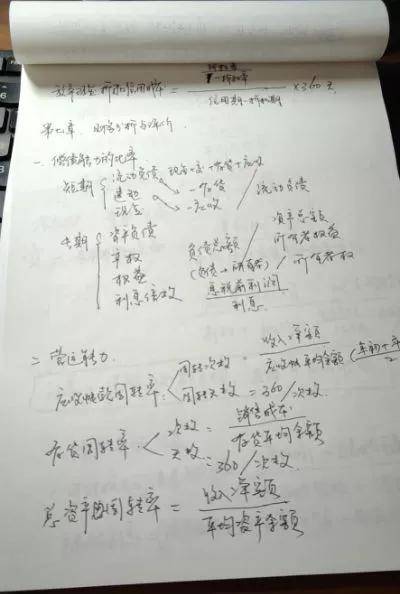 放弃现金折扣信用成本 = 折扣率 / 1-折扣率 / 信用期-折扣期 ×360天
第七章. 财务分析与评价.
一. 偿债能力的比率
短期 { 流动负债 现金+交+存货+应收
速动 -存货 / 流动负债
现金 -应收
长期 { 资产负债 负债总额 / 资产总额
产权 所有者权益
权益 (负债 → 所有者) / 所有者权
利息倍数 息税前利润 / 利息
二 营运能力.
应收账款周转率: < 周转次数 = 收入净额 / 应收账平均余额 (年初+年 / 2
周转天数 = 360/次数.
存货周转率. < 次数 = 销售成本 / 存货平均余额
天数 = 360/次数.
总资产周转率 = 收入净额 / 平均资产余额